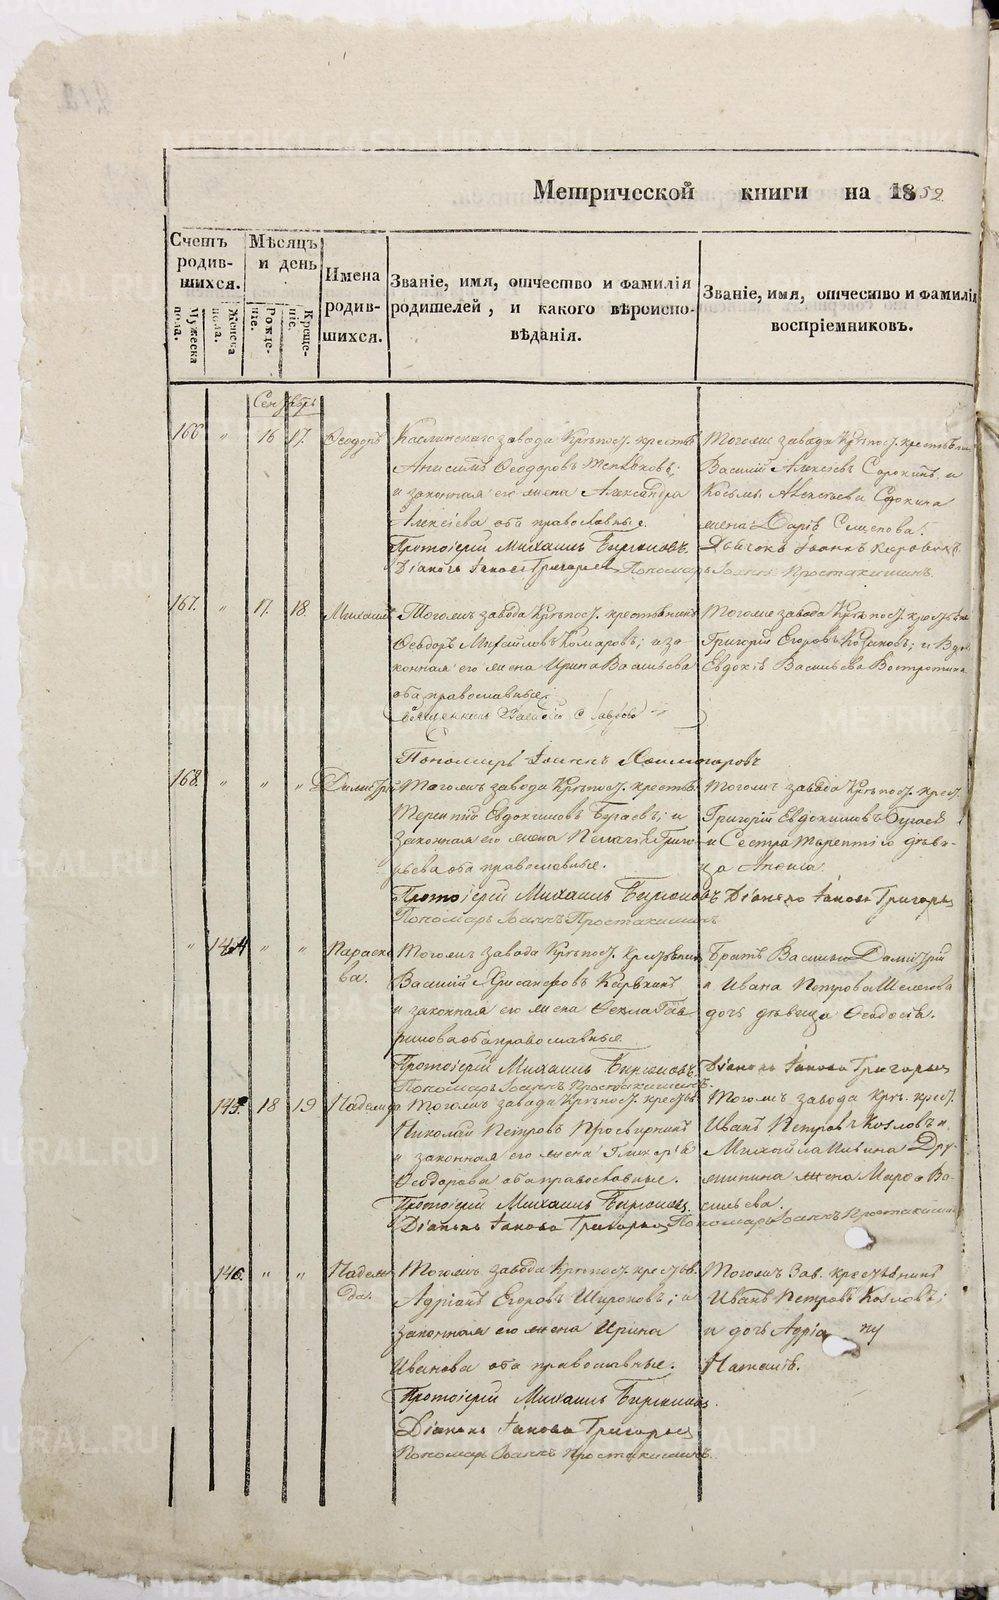 Метрической книги на 1852
Счетъ родив-шихся.
Мужеска пола.
Женска пола.
Мѣсяцъ и день
Рожде-ніе.
Креще-ніе.
Имена родив-шихся.
Званіе, имя, отчество и фамилія родителей, и какого вѣроиспо-вѣданія.
Званіе, имя, отчество и фамилія воспріемниковъ.
Сентябрь
166 " 16 17. Ѳеодоръ
Каслинскаго завода Крѣпост. крестья.
Анисимъ Ѳеодоровъ
и законная его жена Александра
Алексіева оба православные.
Протоіерей Михаилъ Бирюковъ.
Діаконъ Іаковъ Григорьев Пономарь Іоаннъ Простакишинъ.
Тогоже завода Крѣпост. крестьянинъ
Василій Алексіевъ Сорокинъ, и
Косьмы Алексѣева Сорокина
жена Дарія
167. " 17. 18. Михаилъ
Тогожъ завода Крѣпост. крестьянинъ
Ѳеодоръ Михайловъ Комаровъ; и за-
конная его жена Ирина Васильева
оба православные.
Пономарь Іоаннъ
Тогоже завода Крѣпост. крестьян.
Григорій Егоровъ Козаковъ; и Вдова
Евдокія Васильева Востротина
168. " " " Димитрій
Тогожъ завода Крѣпост. крестья.
Терентій Евдокимовъ Бугаевъ; и
законная его жена Пелагія Григо-
рьева оба православные.
Протоіерей Михаилъ Бирюковъ Діаконъ Іаковъ Григорьев
Пономарь Іоаннъ Простакишинъ
Тогожъ завода Крѣпост. крест.
Григорій Евдокимовъ Бугаев
и Сестра Терентія дѣви-
ца
" 144 " " Параске-
ва.
Тогожъ завода Крѣпост. крестьянинъ
Василій Хрисанфовъ
и законная его жена Ѳекла Гав-
рилова оба православные
Протоіерей Михаилъ Бирюковъ. Діаконъ Іаковъ Григорьев
Пономарь Іоаннъ Простакишинъ.
Братъ Василья Димитрій
и Ивана Петрова Шелегова
дочь дѣвица Ѳеодосія.
145. 18 19 Надежда
Тогожъ завода Крѣпост. крестья.
Николай Петровъ Просвирнинъ
и законная его жена Гликерія
Ѳеодорова оба православные.
Протоіерей Михаилъ Бирюков.
Діаконъ Іаковъ Григорьев Пономарь Іоаннъ Простакишин
Тогожъ завода Крѣ. крест.
Иванъ Петровъ Козловъ и
Михайла Ильина Дру-
жинина жена Марѳа Ва-
сильева.
146. " " Надеж-
да.
Тогожъ завода Крѣпост. крестья.
Адріанъ Егоровъ Широковъ; и
законная его жена Ирина
Иванова оба православные.
Протоіерей Михаилъ Бирюков.
Діаконъ Іаковъ Григорьев
Пономарь Іоаннъ Простакишинъ.
Тогожъ Зав. крестьянинъ
Иванъ Петровъ Козловъ;
и дочь Адріа
Наталія.